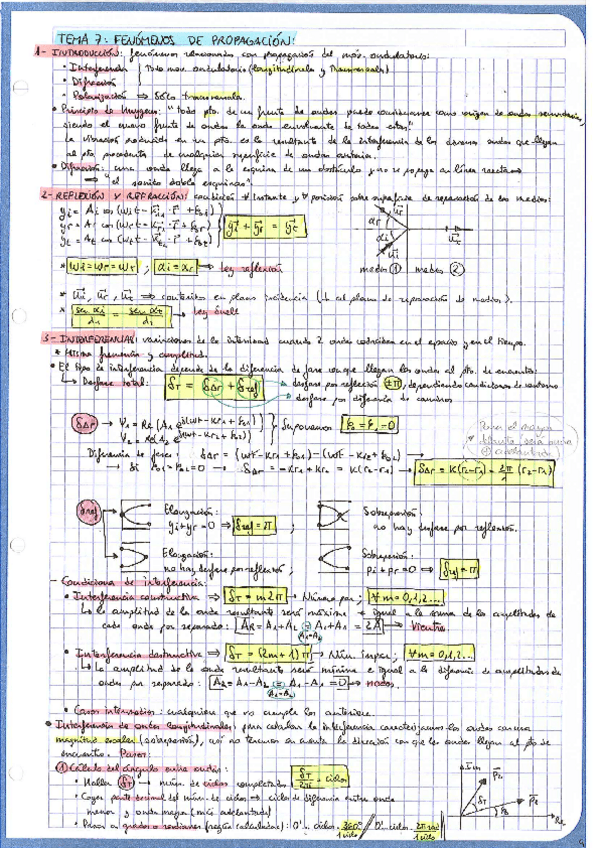 TEMA 7: FENÓMENOS DE PROPAGACIÓN:
1- INTRODUCCIÓN: fenómenos relacionados con propagación del mov. ondulatorio:
• Interferencia } Todo mov. ondulatorio (longitudinales y transversales)
• Difracción
• Polarización ⇒ Sólo transversales.
• Principio de Huygens: "todo pto. de un frente de ondas puede considerarse como origen de ondas secundarias,
siendo el nuevo frente de ondas la onda envolvente de todas estas."
La vibración producida en un pto. es la resultante de la interferencia de las diversas ondas que llegan
al pto procedente de cualquier superficie de ondas anterior.
• Difracción: una onda llega a la esquina de un obstáculo y no se propaga en línea recta
⇒ "el sonido dobla esquinas"
2- REFLEXIÓN Y REFRACCIÓN: condición ∀ instante y ∀ posición sobre superficie de separación de los medios:
yi = Ai cos (wit - Ki · r + ξoi)
yr = Ar cos (wrt - Kr · r + ξor)
yt = At cos (wtt - Kt · r + ξot)
yi + yr = yt
αr
αi
ur
ui
ut
medio ① medio ②
* wi = wr = wt ; αi = αr → Ley reflexión
* ui, ur, ut ⇒ contenidos en plano incidencia (⊥ al plano de separación de medios).
→ Ley Snell
3- INTERFERENCIAS: variaciones de la intensidad cuando 2 ondas coinciden en el espacio y en el tiempo.
* Misma frecuencia y amplitud.
• El tipo de interferencia depende de la diferencia de fase con que llegan las ondas al pto. de encuentro:
↳ Desfase total: δT = δΔr + δref → desfase por reflexión ±π, dependiendo condiciones de contorno
→ desfase por diferencia de caminos
δΔr → Suponemos ξ2 = ξ1 = 0
Diferencia de fase:
→ δΔr = -Kr1 + Kr2 = K(r2-r1) → δΔr = K(r2-r1) = 2π/λ (r2-r1)
δref
Elongación:
yi + yr = 0 ⇒ δref = π ;
Sobrepresión:
no hay desfase por reflexión.
Elongación:
no hay desfase por reflexión ;
Sobrepresión:
pi + pr = 0 ⇒ δref = π
- Condiciones de interferencia:
• Interferencia constructiva ⇒ δT = m2π → Número par ; ∀m = 0,1,2...
↳ la amplitud de la onda resultante será máxima e igual a la suma de las amplitudes de
cada onda por separado: AR = A1 + A2 = A1 + A1 = 2A → Vientre
(A1=A2)
• Interferencia destructiva ⇒ δT = (2m+1)π → Núm. impar ; ∀m = 0,1,2...
↳ La amplitud de la onda resultante será mínima e igual a la diferencia de amplitudes de
ondas por separado: AR = A1 - A2 = A1 - A1 = 0 → nodo.
(A1=A2)
• Casos intermedios: cualquiera que no cumpla los anteriores.
• Interferencia de ondas longitudinales: para calcular la interferencia caracterizamos las ondas con una
magnitud escalar (sobrepresión), así no tenemos en cuenta la dirección con que las ondas llegan al pto de
encuentro. Pasos:
① Cálculo del ángulo entre ondas:
• Hallar δT → núm. de ciclos completados δT/2π = ciclos
• Coger parte decimal del núm. de ciclos → ciclos de diferencia entre onda
menor y onda mayor (más adelantada)
• Pasar a grados o radianes (según calculadora): 0' ciclos · 360°/1 ciclo / 0' ciclos · 2π rad/1 ciclo
Im
P2
δT
P1
Re